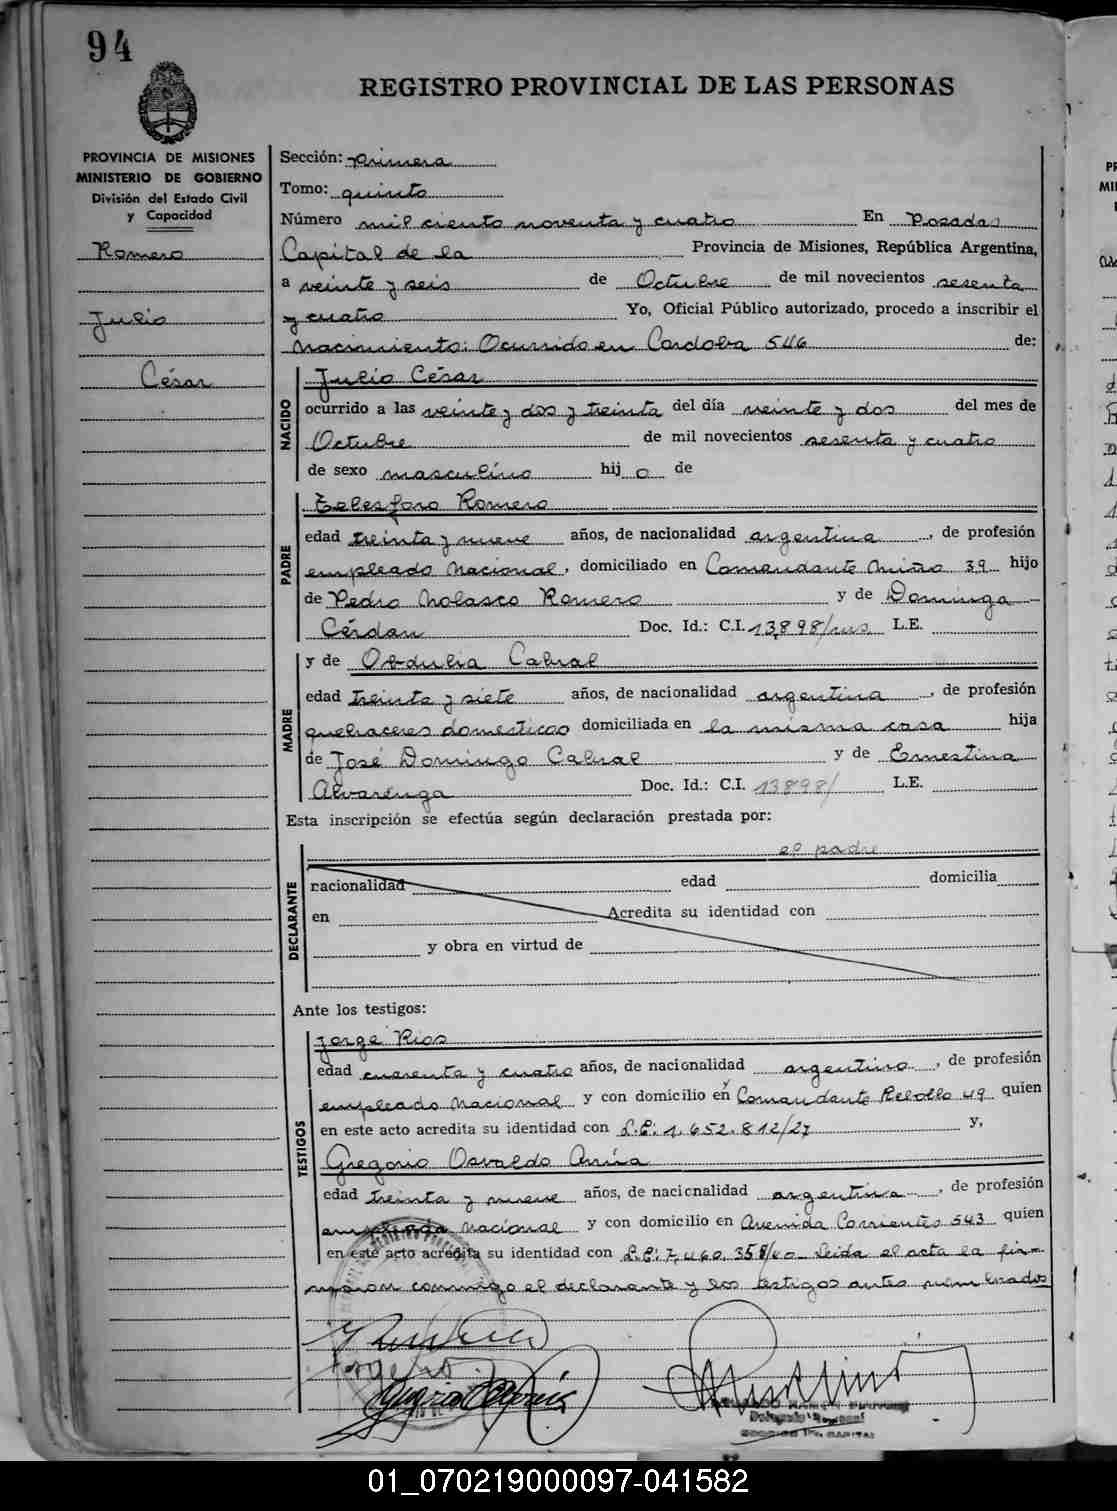 94
REGISTRO PROVINCIAL DE LAS PERSONAS
PROVINCIA DE MISIONES
MINISTERIO DE GOBIERNO
División del Estado Civil
y Capacidad
Romero
Julio
César
Sección: primera
Tomo: quinto
Número mil ciento noventa y cuatro En Posadas
Capital de la Provincia de Misiones, República Argentina,
a veinte y seis de Octubre de mil novecientos sesenta
y cuatro Yo, Oficial Público autorizado, procedo a inscribir el
Nacimiento: Ocurrido en Cordoba 546 de:
NACIDO
Julio César
ocurrido a las veinte y dos y treinta del día veinte y dos del mes de
Octubre de mil novecientos sesenta y cuatro
de sexo masculino hij o de
PADRE
Telesforo Romero
edad treinta y nueve años, de nacionalidad argentina, de profesión
empleado nacional, domiciliado en Comandante Miño 39 hijo
de Pedro Nolasco Romero y de Dominga
Cérdan Doc. Id.: C.I. 13,898/ L.E.
MADRE
y de Obdulia Cabral
edad treinta y siete años, de nacionalidad argentina, de profesión
quehaceres domesticos domiciliada en la misma casa hija
de José Domingo Cabral y de Ernestina
Alvarenga Doc. Id.: C.I. 13898/ L.E.
Esta inscripción se efectúa según declaración prestada por:
el padre
DECLARANTE
nacionalidad edad domicilia
en Acredita su identidad con
y obra en virtud de
Ante los testigos:
TESTIGOS
Jorge Rios
edad cuarenta y cuatro años, de nacionalidad argentino, de profesión
empleado nacional y con domicilio en Comandante 49 quien
en este acto acredita su identidad con L.E: 1.652.812/27 y,
Gregorio Osvaldo
edad treinta y nueve años, de nacionalidad argentina, de profesión
empleado nacional y con domicilio en Avenida Corrientes 543 quien
en este acto acredita su identidad con L.E: 7,460,358/40 Leida el acta la fir-
maron conmigo el declarante y los testigos antes nombrados
01_070219000097-041582